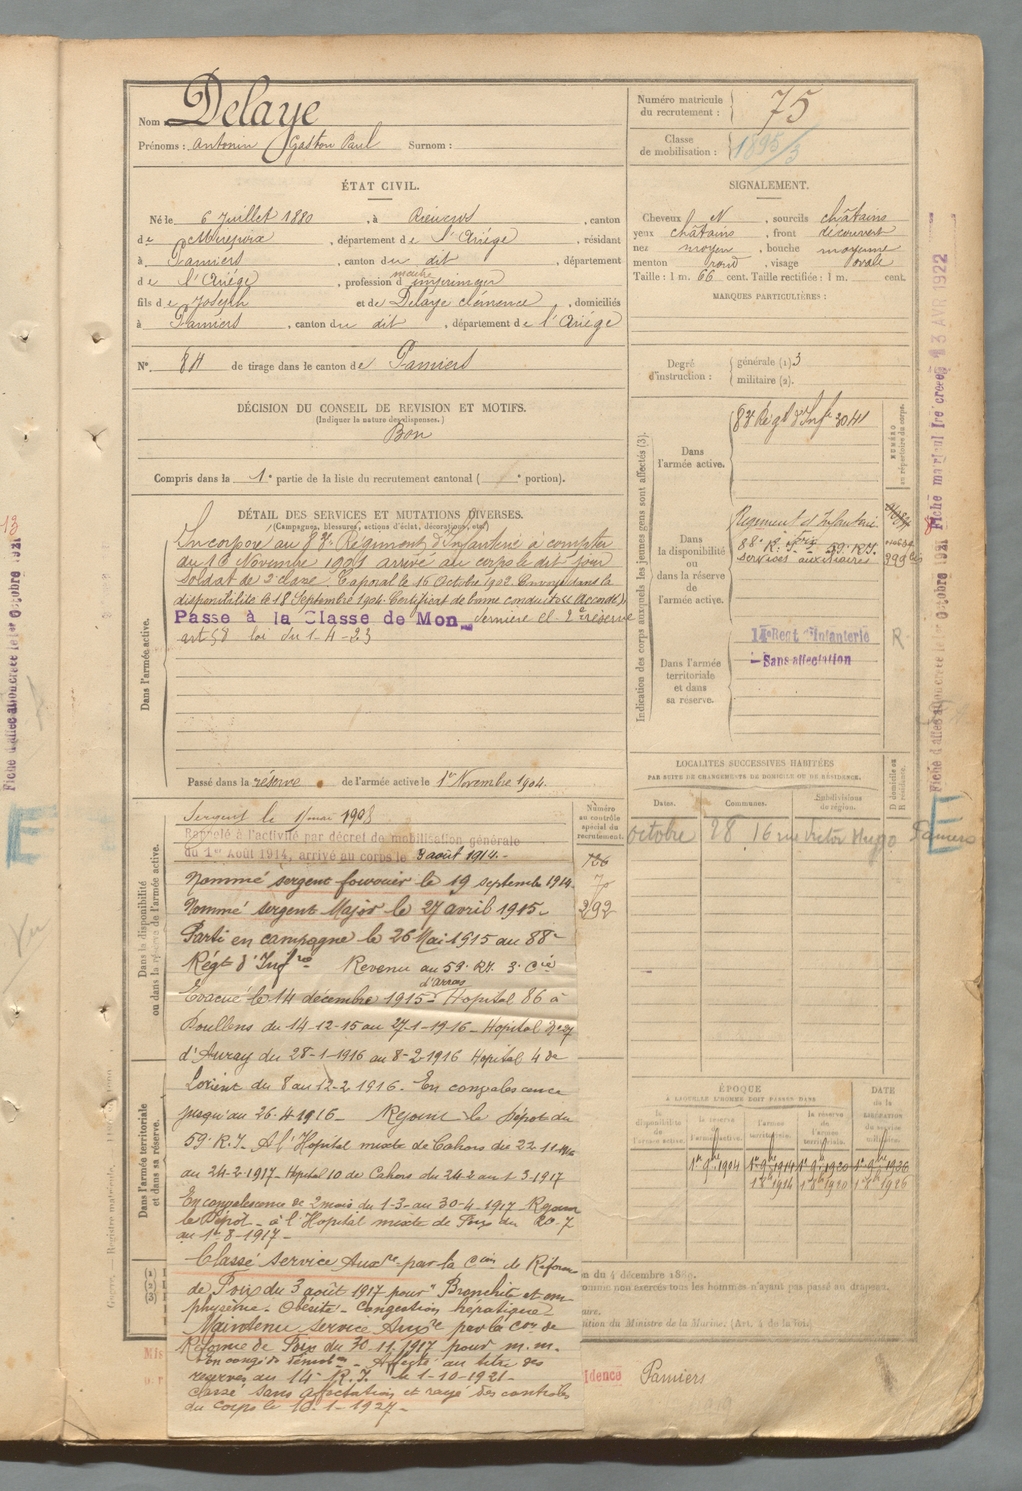 Nom : Delaye
Prénoms : Antonin Gaston Paul Surnom :
Numéro matricule du recrutement : 75
Classe de mobilisation : 1895/3
ÉTAT CIVIL.
Né le 6 Juillet 1880, à Rieucros, canton
de Mirepoix, département de l'Ariége, résidant
à Pamiers, canton du dit, département
de l'Ariége, profession d maître imprimeur
fils de Joseph et de Delaye Clémence, domiciliés
à Pamiers, canton du dit, département de l'Ariége
N° 84 de tirage dans le canton de Pamiers
SIGNALEMENT.
Cheveux N, sourcils châtains
yeux châtains, front découvert
nez moyen, bouche moyenne
menton rond, visage ovale
Taille : 1 m. 66 cent. Taille rectifiée : 1 m. cent.
MARQUES PARTICULIÈRES :
Degré d'instruction : générale (1) 3
militaire (2).
DÉCISION DU CONSEIL DE REVISION ET MOTIFS.
(Indiquer la nature des dispenses.)
Bon
Compris dans la 1e partie de la liste du recrutement cantonal ( e portion).
DÉTAIL DES SERVICES ET MUTATIONS DIVERSES.
(Campagnes, blessures, actions d'éclat, décorations, etc.)
Dans l'armée active.
Incorporé au 83e Régiment d'Infanterie à compter
du 16 Novembre 1901 arrivé au corps le dit jour
soldat de 2e classe. Caporal le 16 Octobre 1902. Envoyé dans la
disponibilité le 18 Septembre 1904. Certificat de bonne conduite (accordé)
Passé à la Classe de Mon dernière et 2e réserve
art 58 loi du 1-4-23
Passé dans la réserve de l'armée active le 1er Novembre 1904.
Indication des corps auxquels les jeunes gens sont affectés (3).
Dans l'armée active.
83e Régt d'Infie 3041
NUMÉRO au répertoire du corps.
Dans la disponibilité ou dans la réserve de l'armée active.
Régiment d'Infanterie
Foix
88e R. I. 59e R.I.
services auxiliaires
Dans l'armée territoriale et dans sa réserve.
14e Régt d'Infanterie R
Sans affectation
LOCALITÉS SUCCESSIVES HABITÉES
PAR SUITE DE CHANGEMENTS DE DOMICILE OU DE RÉSIDENCE.
Dates. Communes. Subdivisions de région. D domicile ou R résidence.
octobre 28 16 rue Victor Hugo Pamiers
Dans la disponibilité ou dans la réserve de l'armée active.
Numéro au contrôle spécial du recrutement.
70
292
Sergent le mai 1908
Rappelé à l'activité par décret de mobilisation générale
du 1er Août 1914, arrivé au corps le 3 août 1914.-
Nommé sergent fourrier le 19 septembre 1914.
Nommé sergent Major le 27 avril 1915.
Parti en campagne le 26 Mai 1915 au 88e
Régt d'Infrie Revenu au 59e R.I. 3e Cie
d'Arras
Evacué le 14 décembre 1915 Hopital 86 à
Doullens du 14-12-15 au 27-1-1916 - Hopital N° 27
d'Auray du 28-1-1916 au 8-2-1916 Hopital 4 de
Lorient du 8 au 12-2 1916. En convalescence
jusqu'au 26-4-1916 - Rejoint le Dépot du
59e R.I. A l'Hopital mixte de Cahors du 22-11-1916
au 24-2-1917 - Hopital 10 de Cahors du 24-2 au 1-3 1917
En convalescence de 2 mois du 1-3 au 30-4-1917 Rejoint
le Dépot - à l'Hopital mixte de Foix du 20-7
au 1er-8-1917 -
Classé service Auxre par la Cion de Réforme
de Foix du 3 août 1917 pour "Bronchite et em
physème - Obésité - Congestion hépatique"
Maintenu service Auxre par la Con de
Réforme de Foix du 30-11-1917 pour m.m.
En congé de démob - Affecté au titre des
réserves au 14e R.I. le 1-10-1921-
classé sans affectation et rayé des controles
du corps le 10-1-1927-
Dans l'armée territoriale et dans sa réserve.
ÉPOQUE
À LAQUELLE L'HOMME DOIT PASSER DANS
la disponibilité de l'armée active. la réserve de l'armée active. l'armée territoriale. la réserve de l'armée territoriale.
DATE de la LIBÉRATION du service militaire.
1er 9bre 1904 1er 9bre 1914 1er 9bre 1920 1er 9bre 1926
1914 1920 1926
on du 4 décembre 1889.
omme non exercés tous les hommes n'ayant pas passé au drapeau.
aire.
ution du Ministre de la Marine. (Art. 4 de la loi.)
idence Pamiers
Fiche d'affectation créée le 1er Octobre 1921
Fiche matricule créée 13 AVR 1922